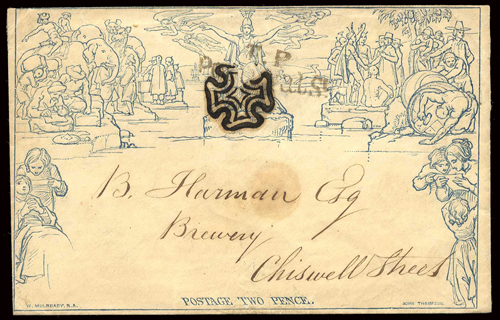 T. P
B. Harman Esq
Brewery
Chiswell Street
POSTAGE TWO PENCE.
W. MULREADY. R.A.
JOHN THOMPSON.